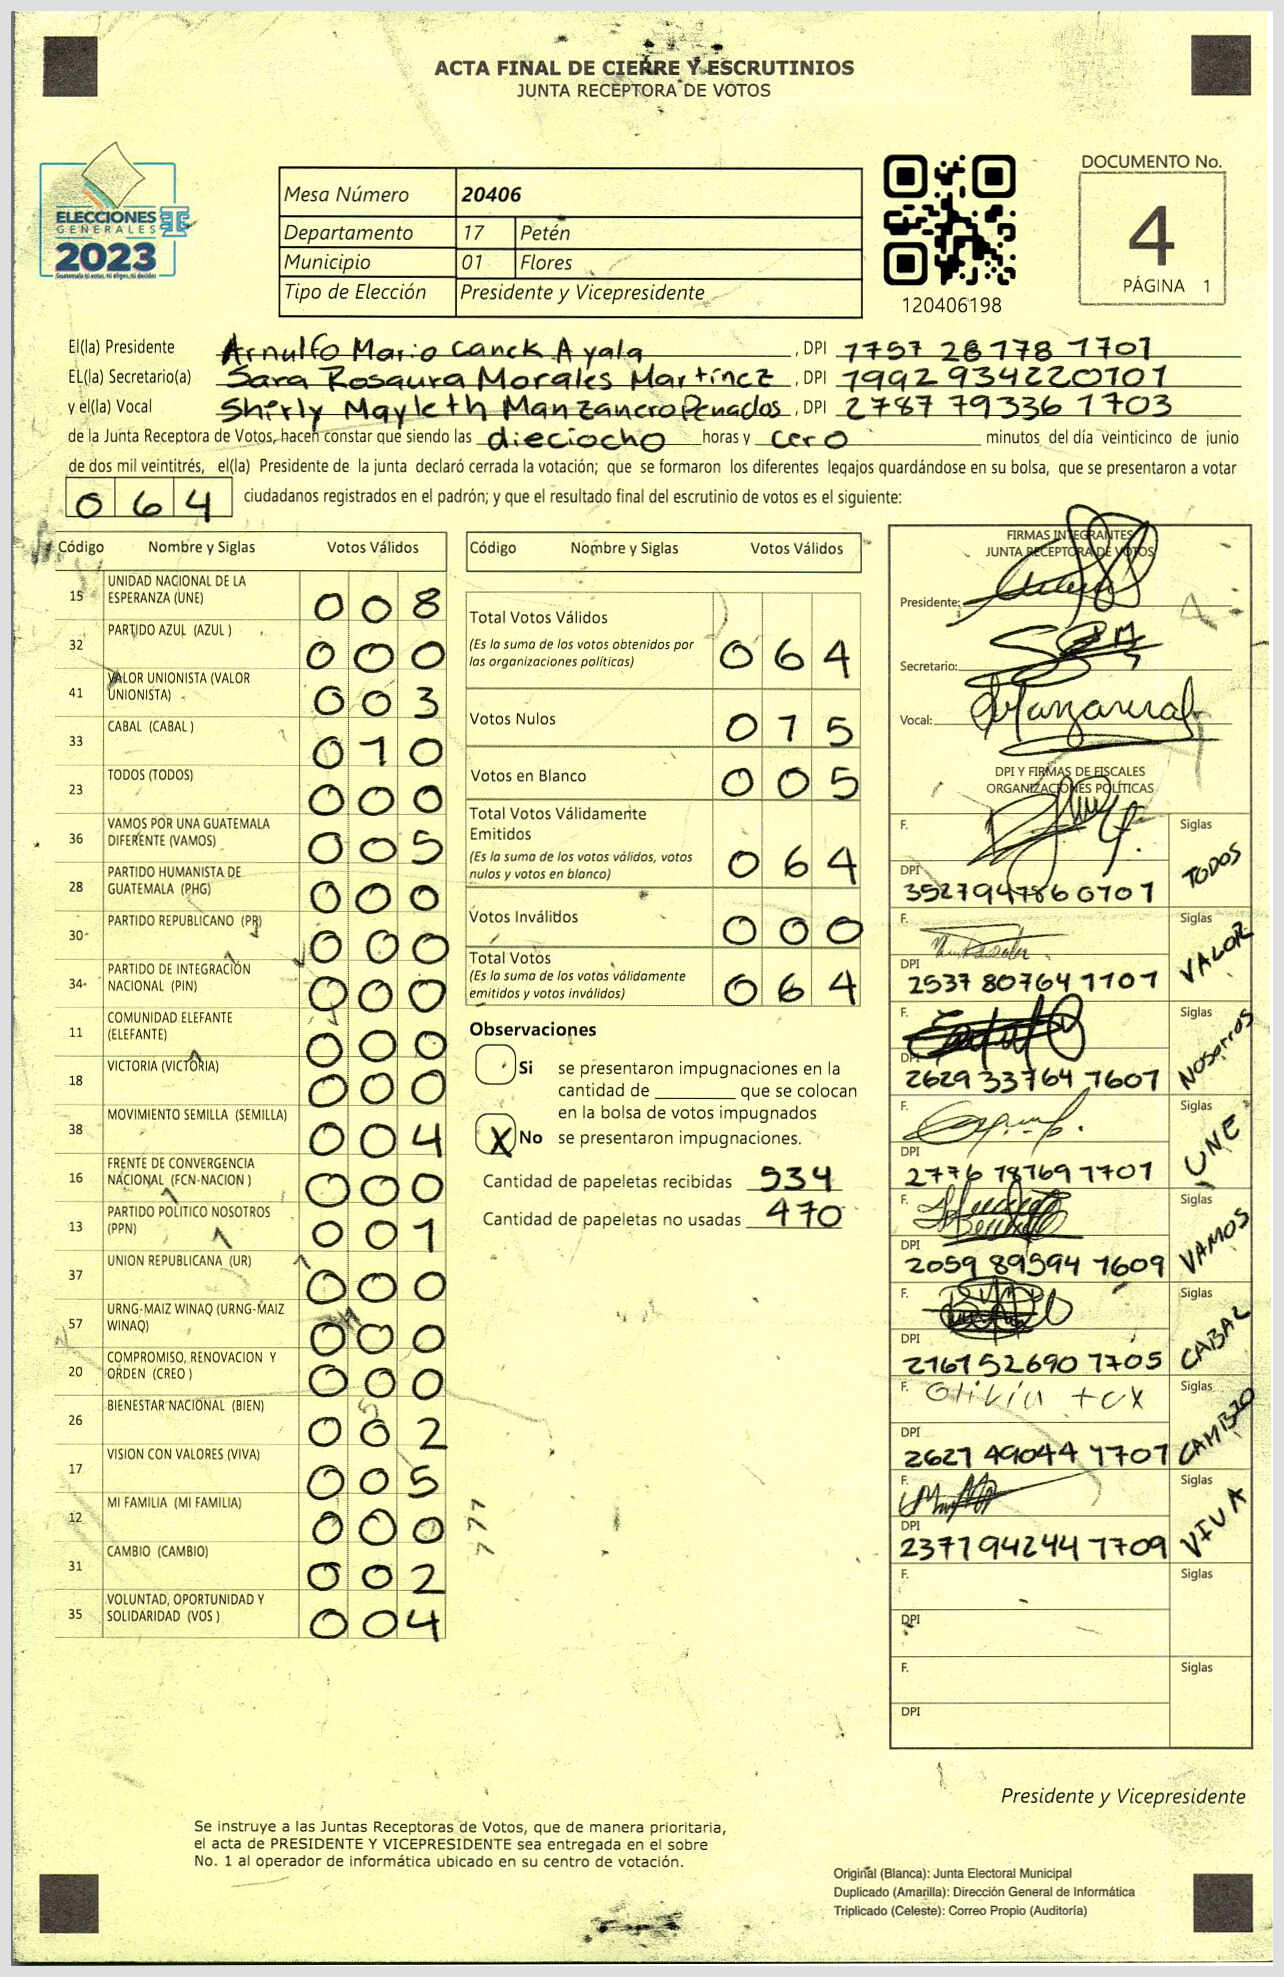 ACTA FINAL DE CIERRE Y ESCRUTINIOS
JUNTA RECEPTORA DE VOTOS
ELECCIONES
GENERALES
2023
Mesa Número 20406
Departamento 17 Petén
Municipio 01 Flores
Tipo de Elección Presidente y Vicepresidente
120406198
DOCUMENTO No.
4
PÁGINA 1
El(la) Presidente Arnulfo Mario Canck Ayala, DPI 1757 28178 1701
EL(la) Secretario(a) Sara Rosaura Morales Martínez, DPI 1992 93422 0101
y el(la) Vocal Shirly Mayleth Manzanero Penados, DPI 2787 79336 1703
de la Junta Receptora de Votos, hacen constar que siendo las dieciocho horas y cero minutos del día veinticinco de junio
de dos mil veintitrés, el(la) Presidente de la junta declaró cerrada la votación; que se formaron los diferentes legajos guardándose en su bolsa, que se presentaron a votar
064 ciudadanos registrados en el padrón; y que el resultado final del escrutinio de votos es el siguiente:
Código Nombre y Siglas Votos Válidos
15 UNIDAD NACIONAL DE LA ESPERANZA (UNE) 008
32 PARTIDO AZUL (AZUL ) 000
41 VALOR UNIONISTA (VALOR UNIONISTA) 003
33 CABAL (CABAL ) 010
23 TODOS (TODOS) 000
36 VAMOS POR UNA GUATEMALA DIFERENTE (VAMOS) 005
28 PARTIDO HUMANISTA DE GUATEMALA (PHG) 000
30 PARTIDO REPUBLICANO (PR) 000
34 PARTIDO DE INTEGRACIÓN NACIONAL (PIN) 000
11 COMUNIDAD ELEFANTE (ELEFANTE) 000
18 VICTORIA (VICTORIA) 000
38 MOVIMIENTO SEMILLA (SEMILLA) 004
16 FRENTE DE CONVERGENCIA NACIONAL (FCN-NACION ) 000
13 PARTIDO POLITICO NOSOTROS (PPN) 001
37 UNION REPUBLICANA (UR) 000
57 URNG-MAIZ WINAQ (URNG-MAIZ WINAQ) 000
20 COMPROMISO, RENOVACION Y ORDEN (CREO ) 000
26 BIENESTAR NACIONAL (BIEN) 002
17 VISION CON VALORES (VIVA) 005
12 MI FAMILIA (MI FAMILIA) 000
31 CAMBIO (CAMBIO) 002
35 VOLUNTAD, OPORTUNIDAD Y SOLIDARIDAD (VOS ) 004
Código Nombre y Siglas Votos Válidos
Total Votos Válidos 064
(Es la suma de los votos obtenidos por
las organizaciones políticas)
Votos Nulos 015
Votos en Blanco 005
Total Votos Válidamente
Emitidos 064
(Es la suma de los votos válidos, votos
nulos y votos en blanco)
Votos Inválidos 000
Total Votos 064
(Es la suma de los votos válidamente
emitidos y votos inválidos)
Observaciones
Si se presentaron impugnaciones en la
cantidad de ________ que se colocan
en la bolsa de votos impugnados
X No se presentaron impugnaciones.
Cantidad de papeletas recibidas 534
Cantidad de papeletas no usadas 470
FIRMAS INTEGRANTES
JUNTA RECEPTORA DE VOTOS
Presidente:
Secretario:
Vocal:
DPI Y FIRMAS DE FISCALES
ORGANIZACIONES POLÍTICAS
F. Siglas TODOS
DPI 3527947860701
F. Siglas VALOR
DPI 2537 80764 1701
F. Siglas NOSOTROS
DPI 2629 33764 1607
F. Siglas UNE
DPI 2776 78769 1701
F. Siglas VAMOS
DPI 2059 89594 1609
F. Siglas CABAL
DPI 2161 52690 1705
F. Olivia tex Siglas CAMBIO
DPI 2627 49044 1701
F. Siglas VIVA
DPI 2371 94244 1709
F. Siglas
DPI
F. Siglas
DPI
Presidente y Vicepresidente
Se instruye a las Juntas Receptoras de Votos, que de manera prioritaria,
el acta de PRESIDENTE Y VICEPRESIDENTE sea entregada en el sobre
No. 1 al operador de informática ubicado en su centro de votación.
Original (Blanca): Junta Electoral Municipal
Duplicado (Amarilla): Dirección General de Informática
Triplicado (Celeste): Correo Propio (Auditoría)